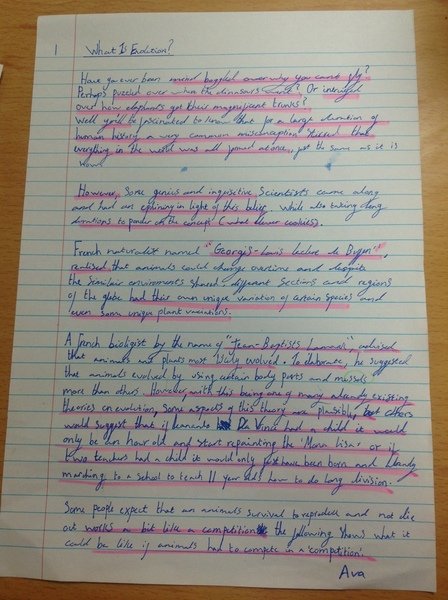 1 What Is Evolution?
Have you ever been mind boggled over why you cant fly?
Perhaps puzzled over when the dinosaurs ? Or intrigued
over how elephants got their magnificent trunks?
Well you'll be fascinated to know that for a large duration of
human history a very common misconception that
everything in the world was all formed at once, just the same as it is
now!
However, some genius and inquisitive scientists came along
and had an epiphany in light of this belief. While also taking long
durations to ponder on the concept (what clever cookies).
French naturalist named "Georgis-Louis leclere de Bugon",
realised that animals could change overtime and despite
the similair enviroments shared different sections and regions
of the globe had their own unique variation of certain species and
even some unique plant variations.
A french biologist by the name of "Jean-Baptists ",
that animals and plants most evolved. To elaborate, he suggested
that animals evolved by using certain body parts and mussels
more than others. However, with this being one of many already existing
theories on evolution, some aspects of this theory are plausible, but others
would suggest that if Lenardo Da Vinci had a child it would
only be an hour old and start repainting the 'Mona lisa' or if
two teachers had a child it would only just have been born and already
marching to a school to teach 11 year olds how to do long division.
Some people expect that an animals survival to reproduce and not die
out works a bit like a competition the following shows what it
could be like if animals had to compete in a 'competition'.
Ava